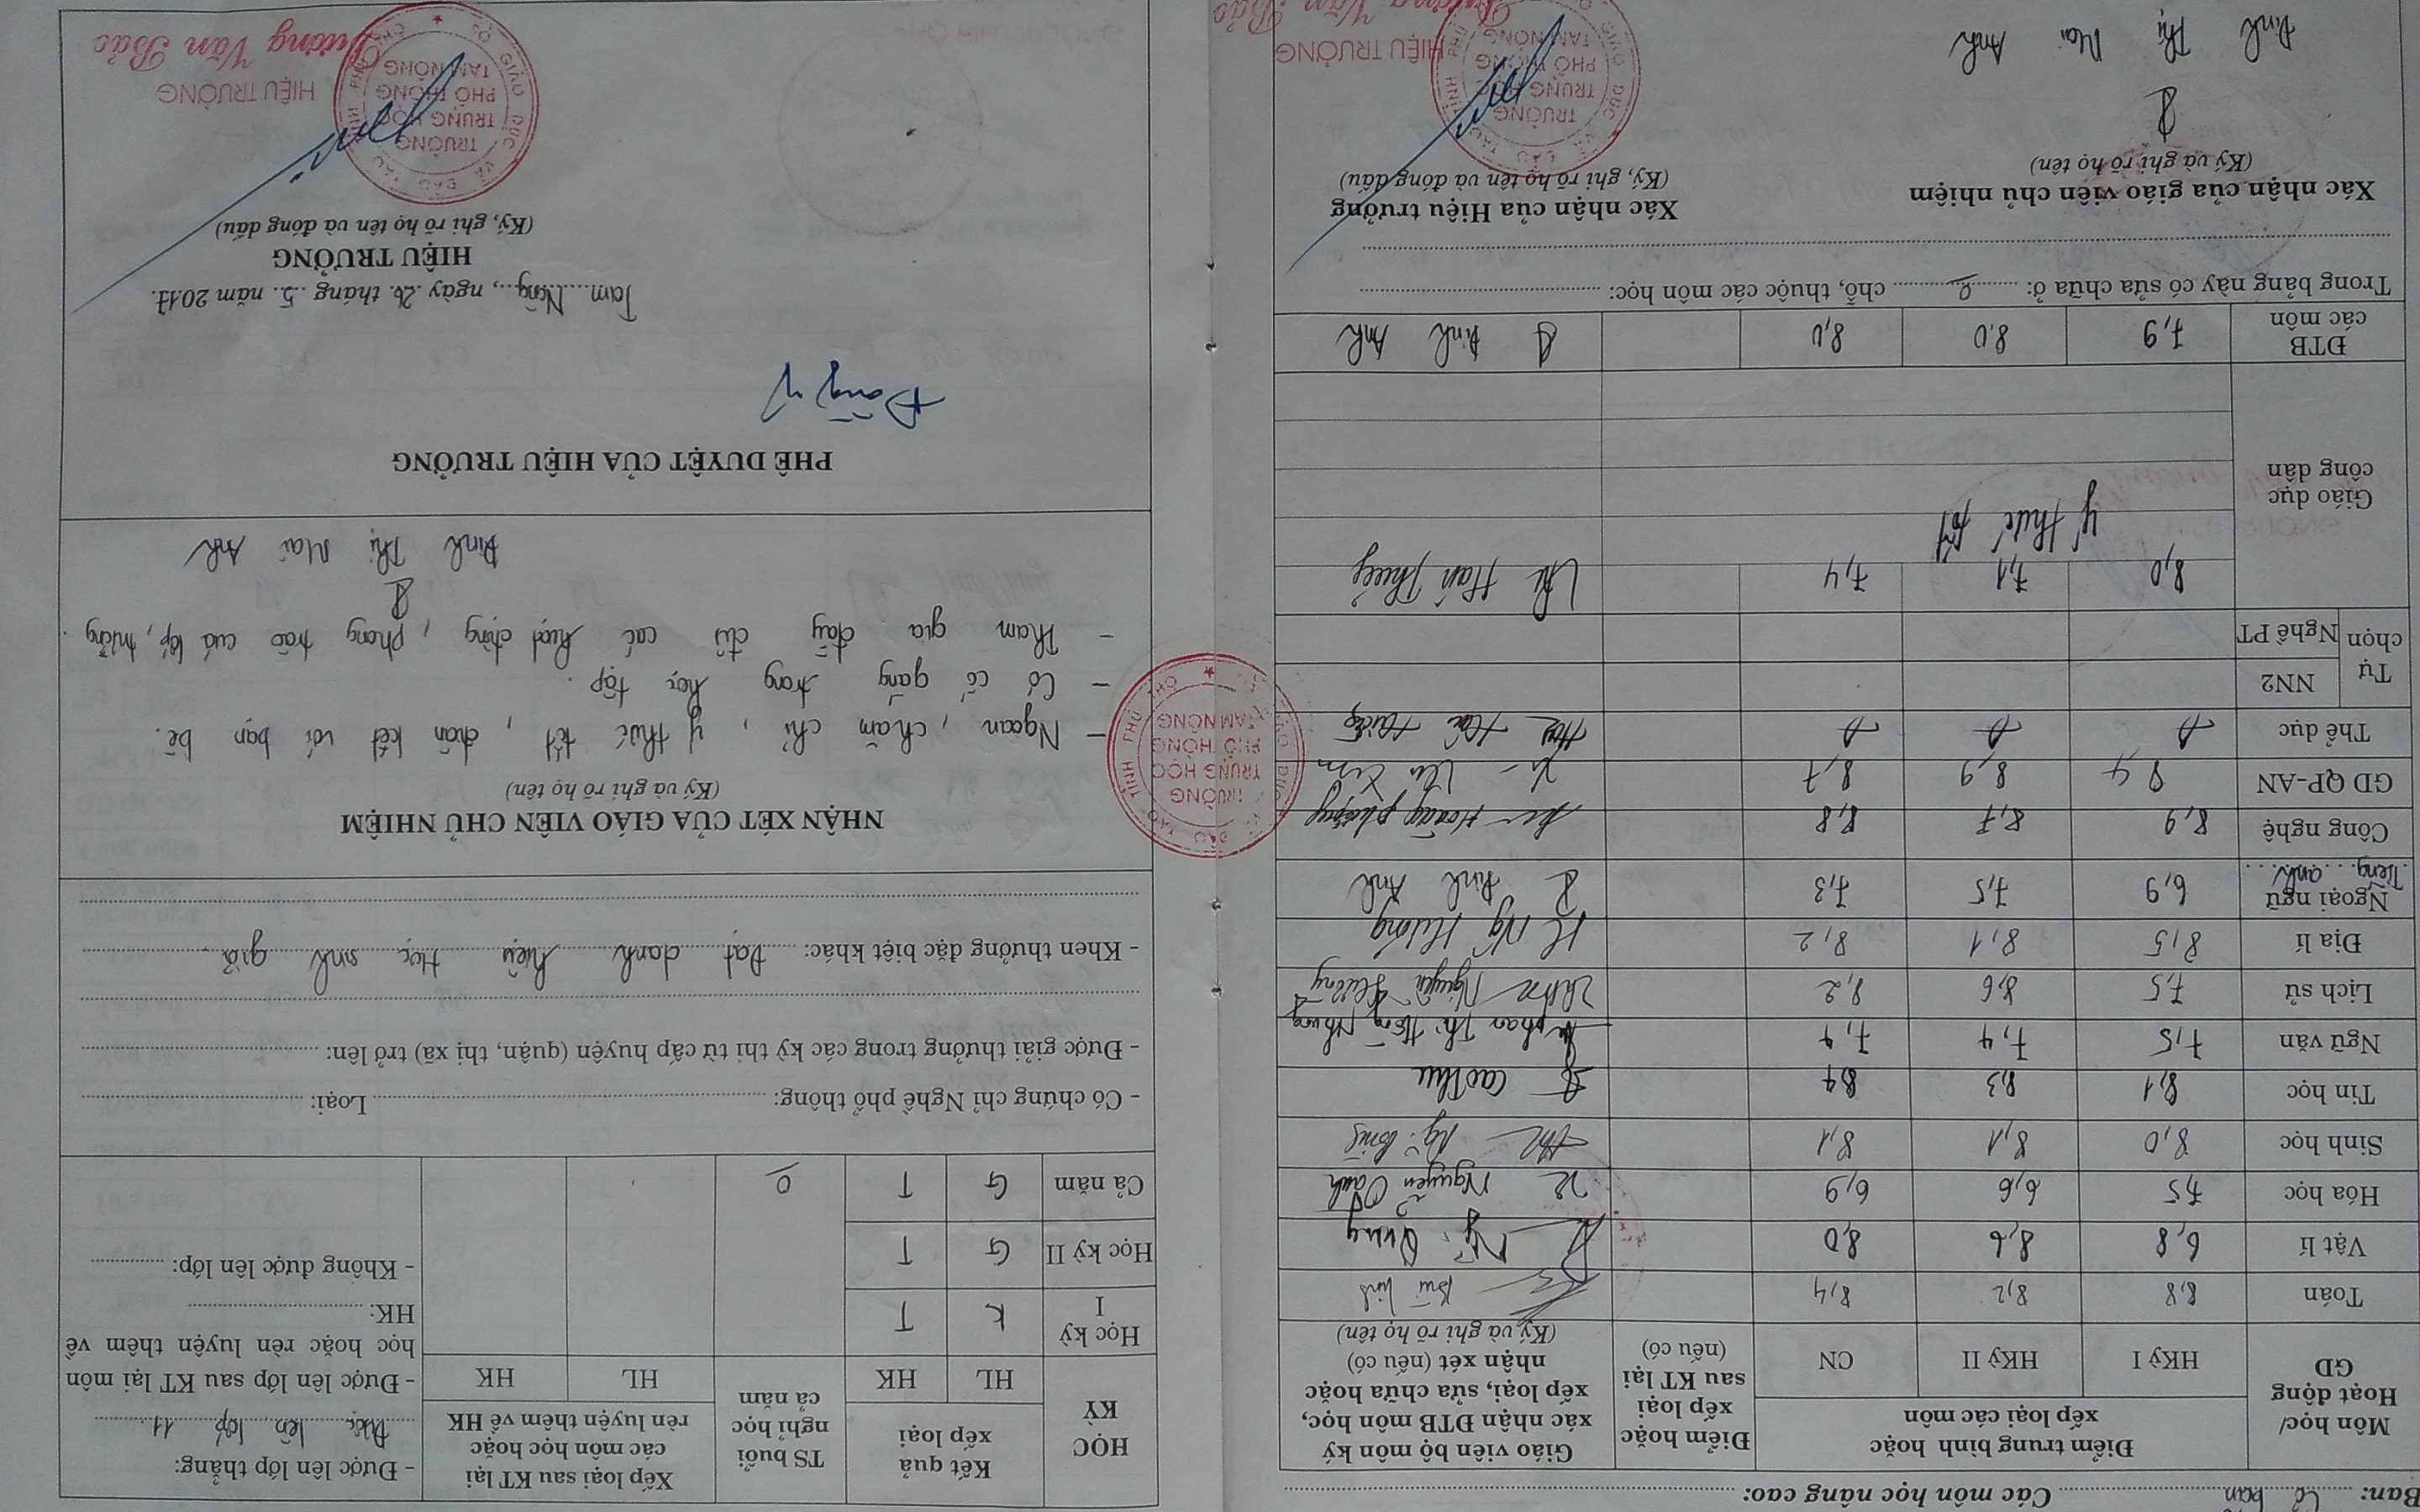 Ban: Cơ bản Các môn học nâng cao:
Môn học/ Hoạt động GD
Điểm trung bình hoặc xếp loại các môn
Điểm hoặc xếp loại sau KT lại (nếu có)
Giáo viên bộ môn ký xác nhận ĐTB môn học, xếp loại, sửa chữa hoặc nhận xét (nếu có)
(Ký và ghi rõ họ tên)
HKỳ I HKỳ II CN
Toán 8,8 8,2 8,4 Bùi Linh
Vật lí 6,8 8,6 8,0 Ng. Dung
Hóa học 7,5 6,6 6,9 Nguyễn Oanh
Sinh học 8,0 8,1 8,1
Tin học 8,1 8,3 8,4 Cao Thu
Ngữ văn 7,5 7,4 7,4 Phan Thị Hồng Nhung
Lịch sử 7,5 8,6 8,2 Nguyễn Phương
Địa lí 8,5 8,1 8,2 Ng Hương
Ngoại ngữ Tiếng anh 6,9 7,5 7,3 Đinh Anh
Công nghệ 8,9 8,7 8,8 Hoàng Phượng
GD QP-AN 8,4 8,9 8,7
Thể dục Đ Đ Đ
Tự chọn NN2
Nghề PT
Giáo dục công dân 8,0 7,1 7,4 Hán Thuỷ
ý thức tốt
ĐTB các môn 7,9 8.0 8,0 Đinh Anh
Trong bảng này có sửa chữa ở: 0 chỗ, thuộc các môn học:
Xác nhận của giáo viên chủ nhiệm
(Ký và ghi rõ họ tên)
Đinh Thị Mai Anh
Xác nhận của Hiệu trưởng
(Ký, ghi rõ họ tên và đóng dấu)
SỞ GIÁO DỤC VÀ ĐÀO TẠO TỈNH PHÚ THỌ
TRƯỜNG
TRUNG HỌC
PHỔ THÔNG
TAM NÔNG
HIỆU TRƯỞNG
Dương Văn Bảo
HỌC KỲ
Kết quả xếp loại
TS buổi nghỉ học cả năm
Xếp loại sau KT lại các môn học hoặc rèn luyện thêm về HK
HL HK HL HK
Học kỳ I K T
Học kỳ II G T
Cả năm G T 0
- Được lên lớp thẳng:
Được lên lớp 11
- Được lên lớp sau KT lại môn
học hoặc rèn luyện thêm về
HK:
- Không được lên lớp:
- Có chứng chỉ Nghề phổ thông: Loại:
- Được giải thưởng trong các kỳ thi từ cấp huyện (quận, thị xã) trở lên:
- Khen thưởng đặc biệt khác: Đạt danh hiệu Học sinh giỏi
NHẬN XÉT CỦA GIÁO VIÊN CHỦ NHIỆM
(Ký và ghi rõ họ tên)
- Ngoan, chăm chỉ, ý thức tốt, đoàn kết với bạn bè.
- Có cố gắng trong học tập.
- Tham gia đầy đủ các hoạt động, phong trào của lớp, trường.
Đinh Thị Mai Anh
TRƯỜNG
TRUNG HỌC
PHỔ THÔNG
TAM NÔNG
PHÊ DUYỆT CỦA HIỆU TRƯỞNG
Đồng ý
Tam Nông, ngày 26 tháng 5 năm 2017.
HIỆU TRƯỞNG
(Ký, ghi rõ họ tên và đóng dấu)
SỞ GIÁO DỤC VÀ ĐÀO TẠO TỈNH PHÚ THỌ
TRƯỜNG
TRUNG HỌC
PHỔ THÔNG
TAM NÔNG
HIỆU TRƯỞNG
Dương Văn Bảo